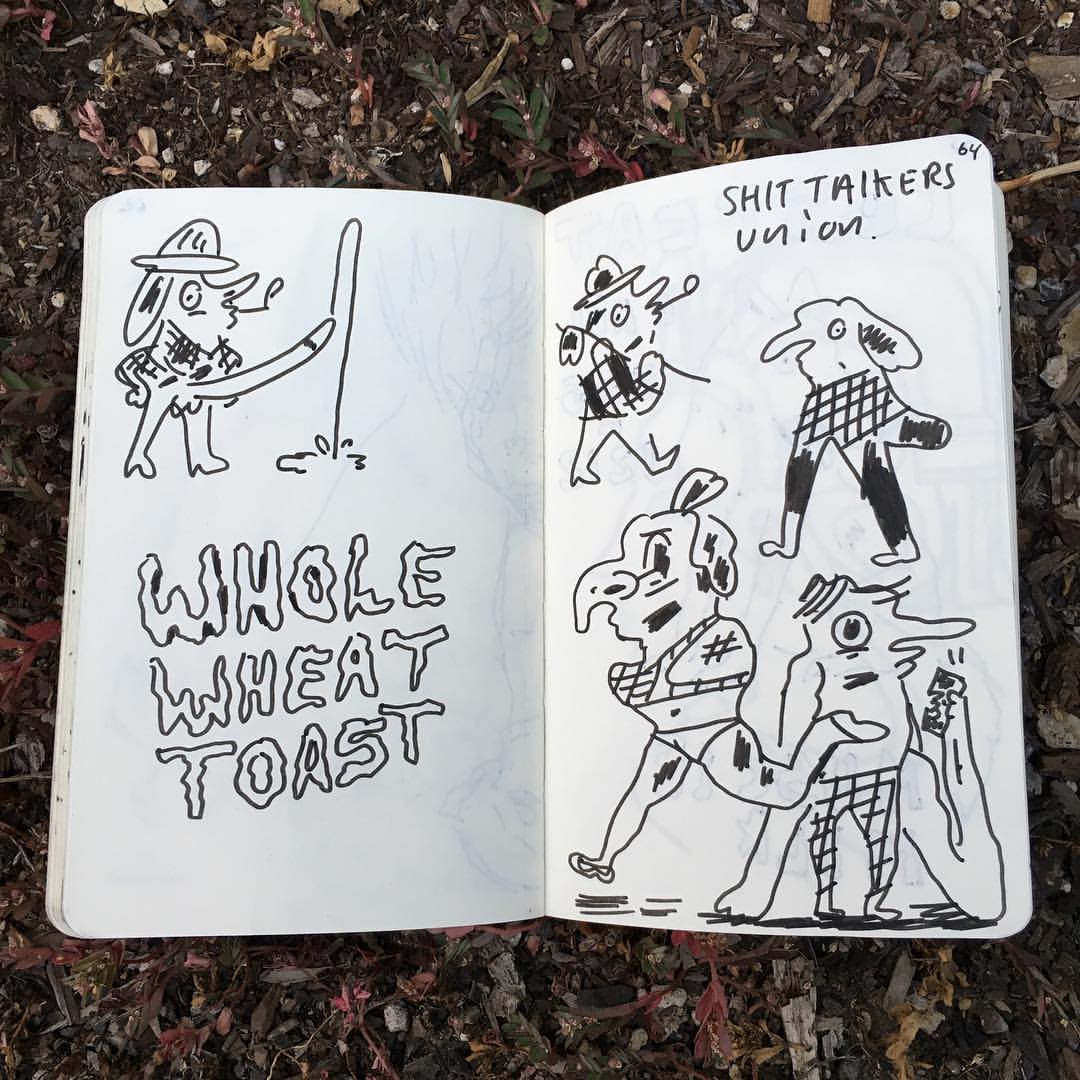 WHOLE
WHEAT
TOAST
64
SHIT TALKERS
union.